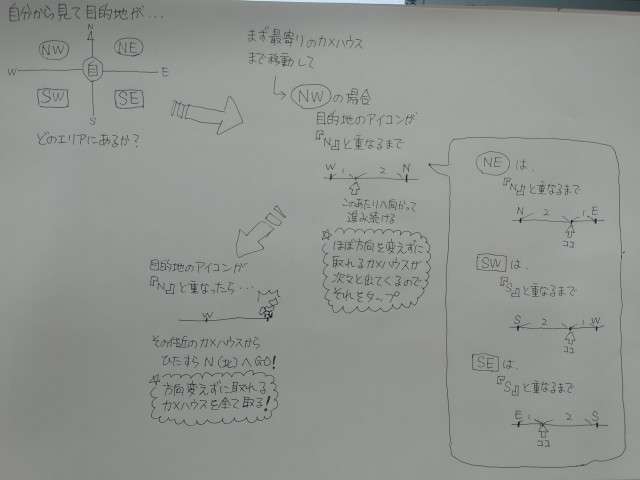 自分から見て目的地が...
N
NW
NE
W
自
E
SW
SE
S
どのエリアにあるか?
まず最寄りのカメハウス
まで移動して
NWの場合
目的地のアイコンが
『N』と重なるまで
W 1 2 N
このあたりへ向かって
進み続ける
ほぼ方向を変えずに
取れるカメハウスが
次々と出てくるので
それをタップ
目的地のアイコンが
『N』と重なったら...
W
その付近のカメハウスから
ひたすらN(北)へGO!
方向変えずに取れる
カメハウスを全て取る!
NEは、
『N』と重なるまで
N 2 1 E
ココ
SWは、
『S』と重なるまで
S 2 1 W
ココ
SEは、
『S』と重なるまで
E 1 2 S
ココ